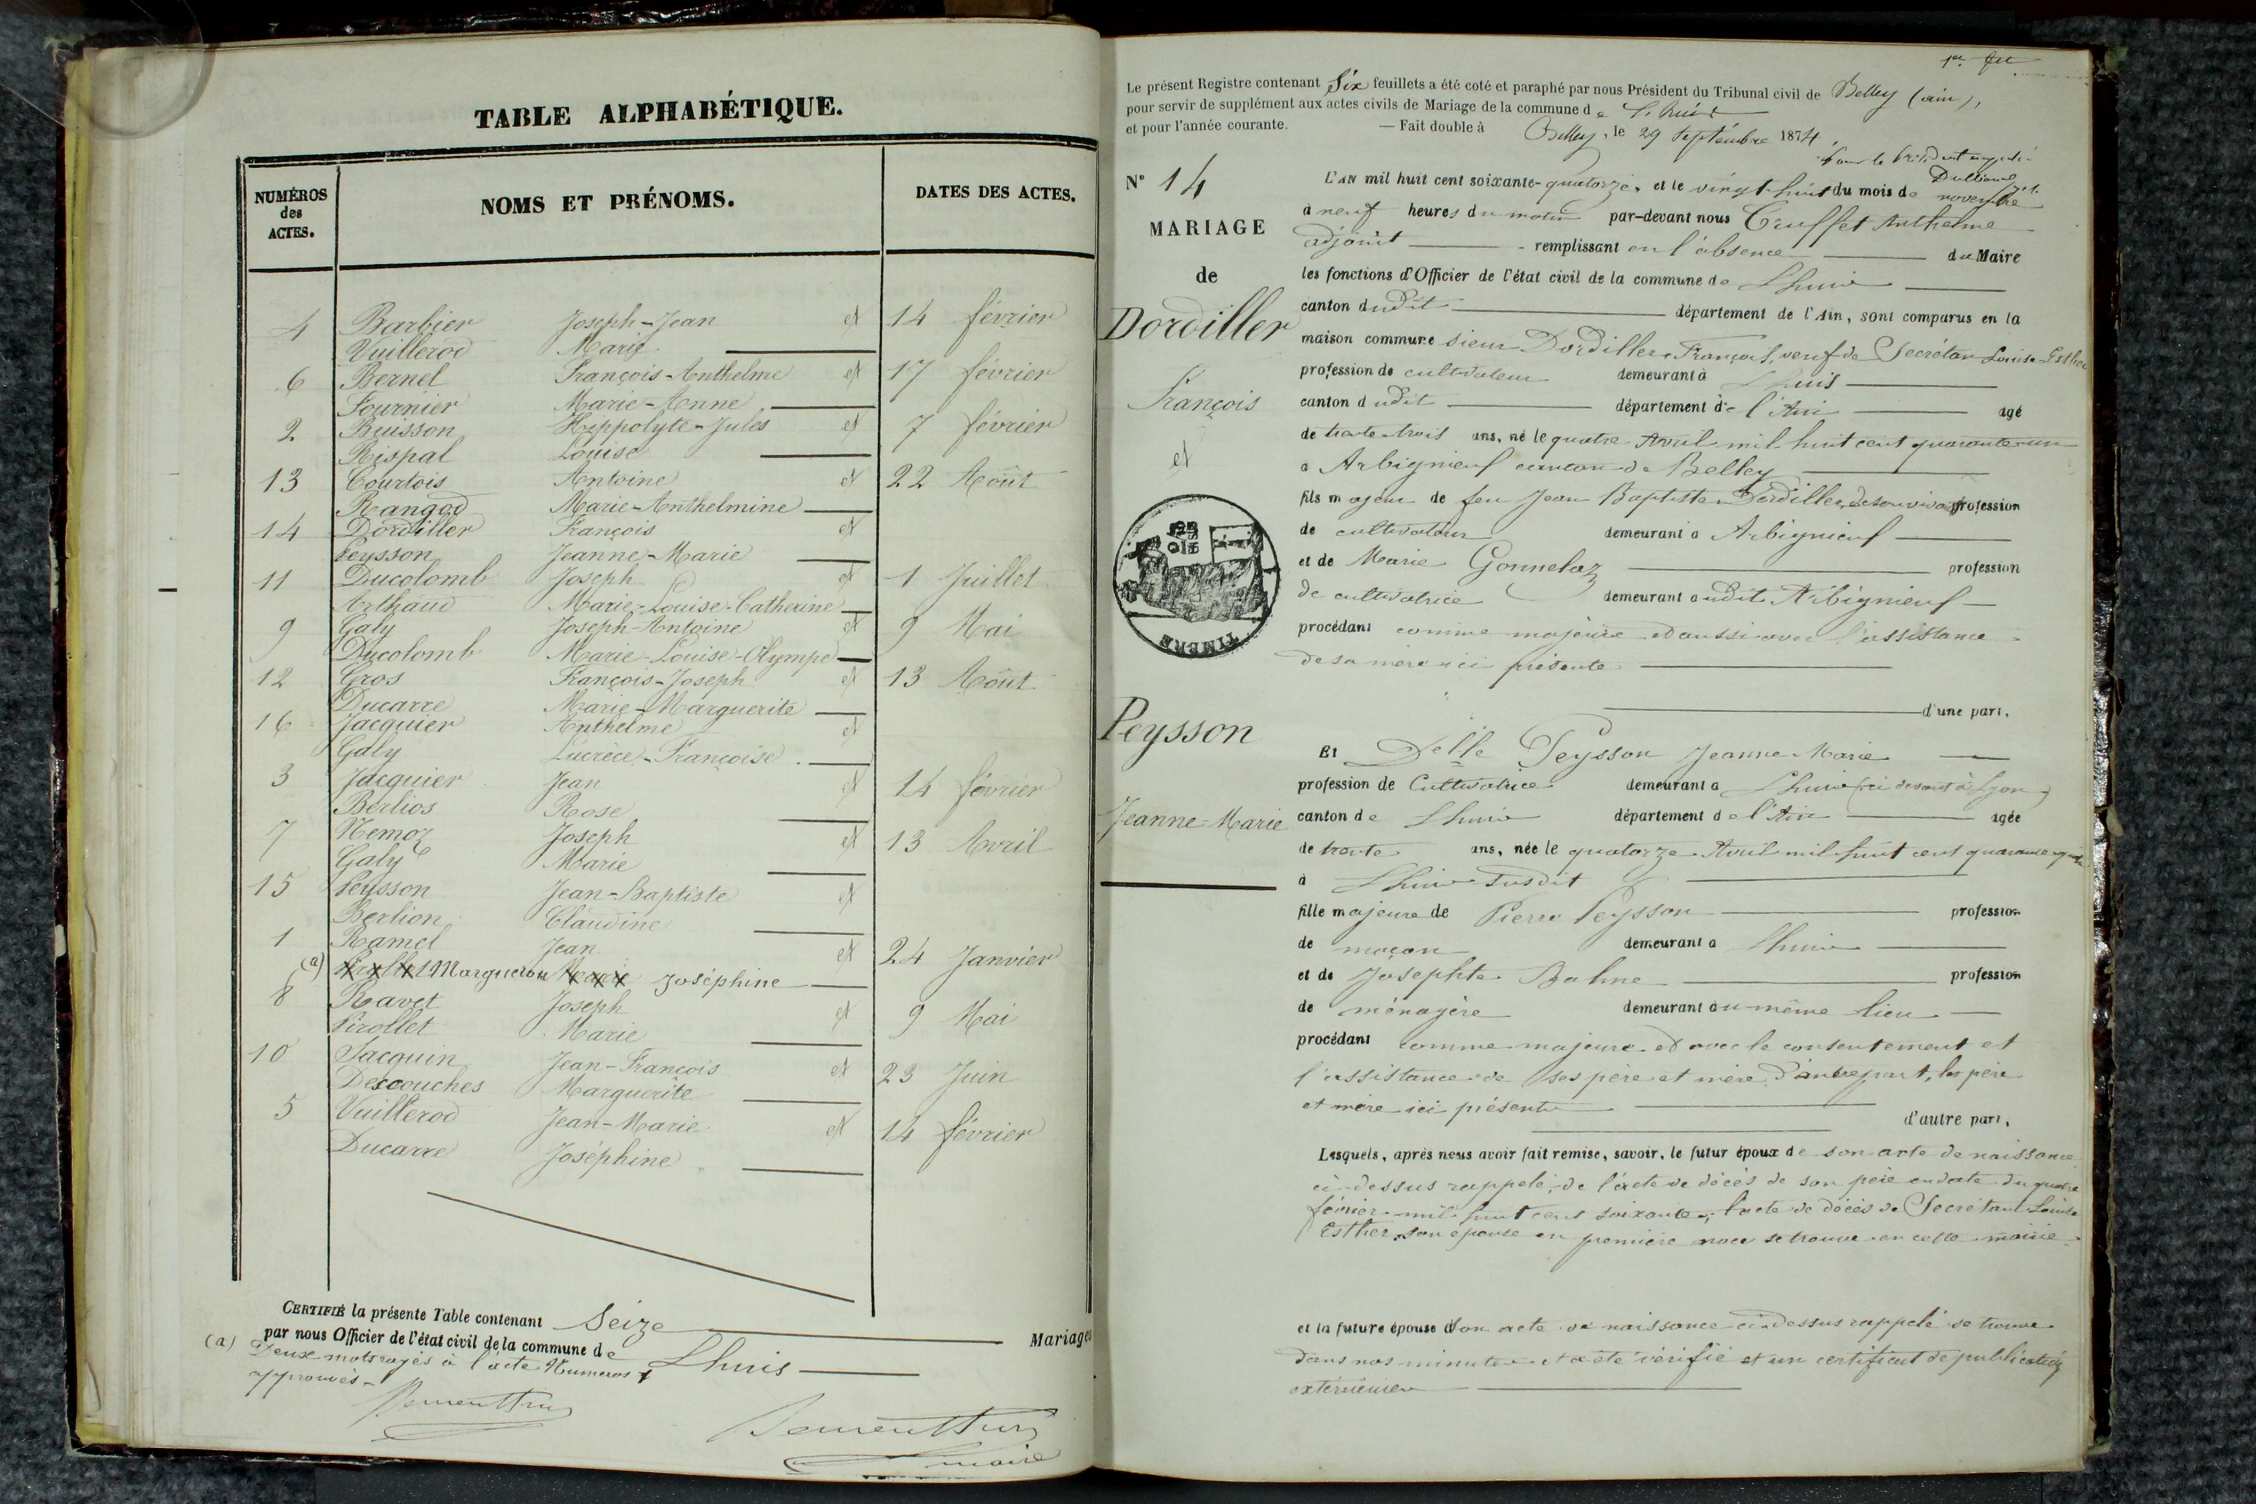 TABLE ALPHABÉTIQUE.
NUMÉROS des ACTES. NOMS ET PRÉNOMS. DATES DES ACTES.
4 Barbier Joseph-Jean et 14 février
Vuillerod Marie
6 Bernel François-Anthelme et 17 février
Fournier Marie-Anne
2 Buisson Hippolyte-Jules et 7 février
Rispal Louise
13 Courtois Antoine et 22 Août
Rangod Marie-Anthelmine
14 Dordiller François et
Peysson Jeanne-Marie
11 Ducolomb Joseph et 1 Juillet
Arthaud Marie-Louise-Catherine
9 Galy Joseph-Antoine et 9 Mai
Ducolomb Marie-Louise-Olympe
12 Gros François-Joseph et 13 Août
Ducarre Marie-Marguerite
16 Jacquier Anthelme et
Galy Lucrèce-Françoise
3 Jacquier Jean et 14 février
Berlios Rose
7 Nemoz Joseph et 13 Avril
Galy Marie
15 Peysson Jean-Baptiste et
Berlion Claudine
1 Ramel Jean et 24 Janvier
(a) Margueron Joséphine
8 Ravet Joseph et 9 Mai
Pirollet Marie
10 Jacquin Jean-François et 23 Juin
Descouches Marguerite
5 Vuillerod Jean-Marie et 14 février
Ducarre Joséphine
CERTIFIÉ la présente Table contenant Seize Mariages
par nous Officier de l'état civil de la commune de Lhuis
(a) Deux mots rayés à l'acte Numéros 1
approuvés
maire
1er
Le présent Registre contenant Six feuillets a été coté et paraphé par nous Président du Tribunal civil de Belley (ain),
pour servir de supplément aux actes civils de Mariage de la commune de
et pour l'année courante. — Fait double à Belley, le 29 Septembre 1874.
Pour le Président empêché
N° 14
MARIAGE
de
Dordiller
François
et
TIMBRE
Peysson
Jeanne-Marie
L'AN mil huit cent soixante-quatorze, et le vingt huit du mois de novembre
à neuf heures du matin par-devant nous Truffet Anthelme
adjoint remplissant en l'absence du Maire
les fonctions d'Officier de l'état civil de la commune de Lhuis
canton dudit département de l'Ain, sont comparus en la
maison commune sieur Dordiller François, veuf de Secrétan Louise Esther
profession de cultivateur demeurant à Lhuis
canton dudit département de l'Ain agé
de trente trois ans, né le quatre Avril mil huit cent quarante un
a Arbignieuf canton de Belley
fils majeur de feu Jean Baptiste Dordiller, de son vivant profession
de cultivateur demeurant a Arbignieuf
et de Marie Gonnelaz profession
de cultivatrice demeurant audit Arbignieuf
procédant comme majeur et aussi avec l'assistance
de sa mère ici présente
d'une part.
Et Delle Peysson Jeanne Marie
profession de Cultivatrice demeurant a Lhuis (ci devant à Lyon)
canton de Lhuis département de l'Ain agée
de trente ans, née le quatorze Avril mil huit cent quarante quatre
à Lhuis susdit
fille majeure de Pierre Peysson profession
de maçon demeurant a Lhuis
et de Josephte profession
de ménagère demeurant au même lieu
procédant comme majeure et avec le consentement et
l'assistance de ses père et mère d'autre part, les père
et mère ici présents
d'autre part.
Lesquels, après nous avoir fait remise, savoir, le futur époux de son acte de naissance
ci-dessus rappelé, de l'acte de décès de son père en date du quatre
février mil huit cent soixante; l'acte de décès de Secrétan Louise
Esther, son épouse en première noce se trouve en cette mairie
et la future épouse son acte de naissance ci-dessus rappelé se trouve
dans nos minutes et a été vérifié et un certificat de publication
extérieure